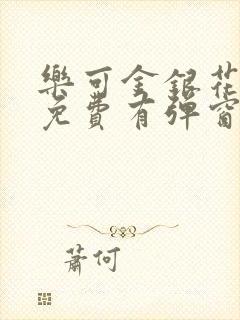 樂可金銀花
免費有彈窗
蕭何